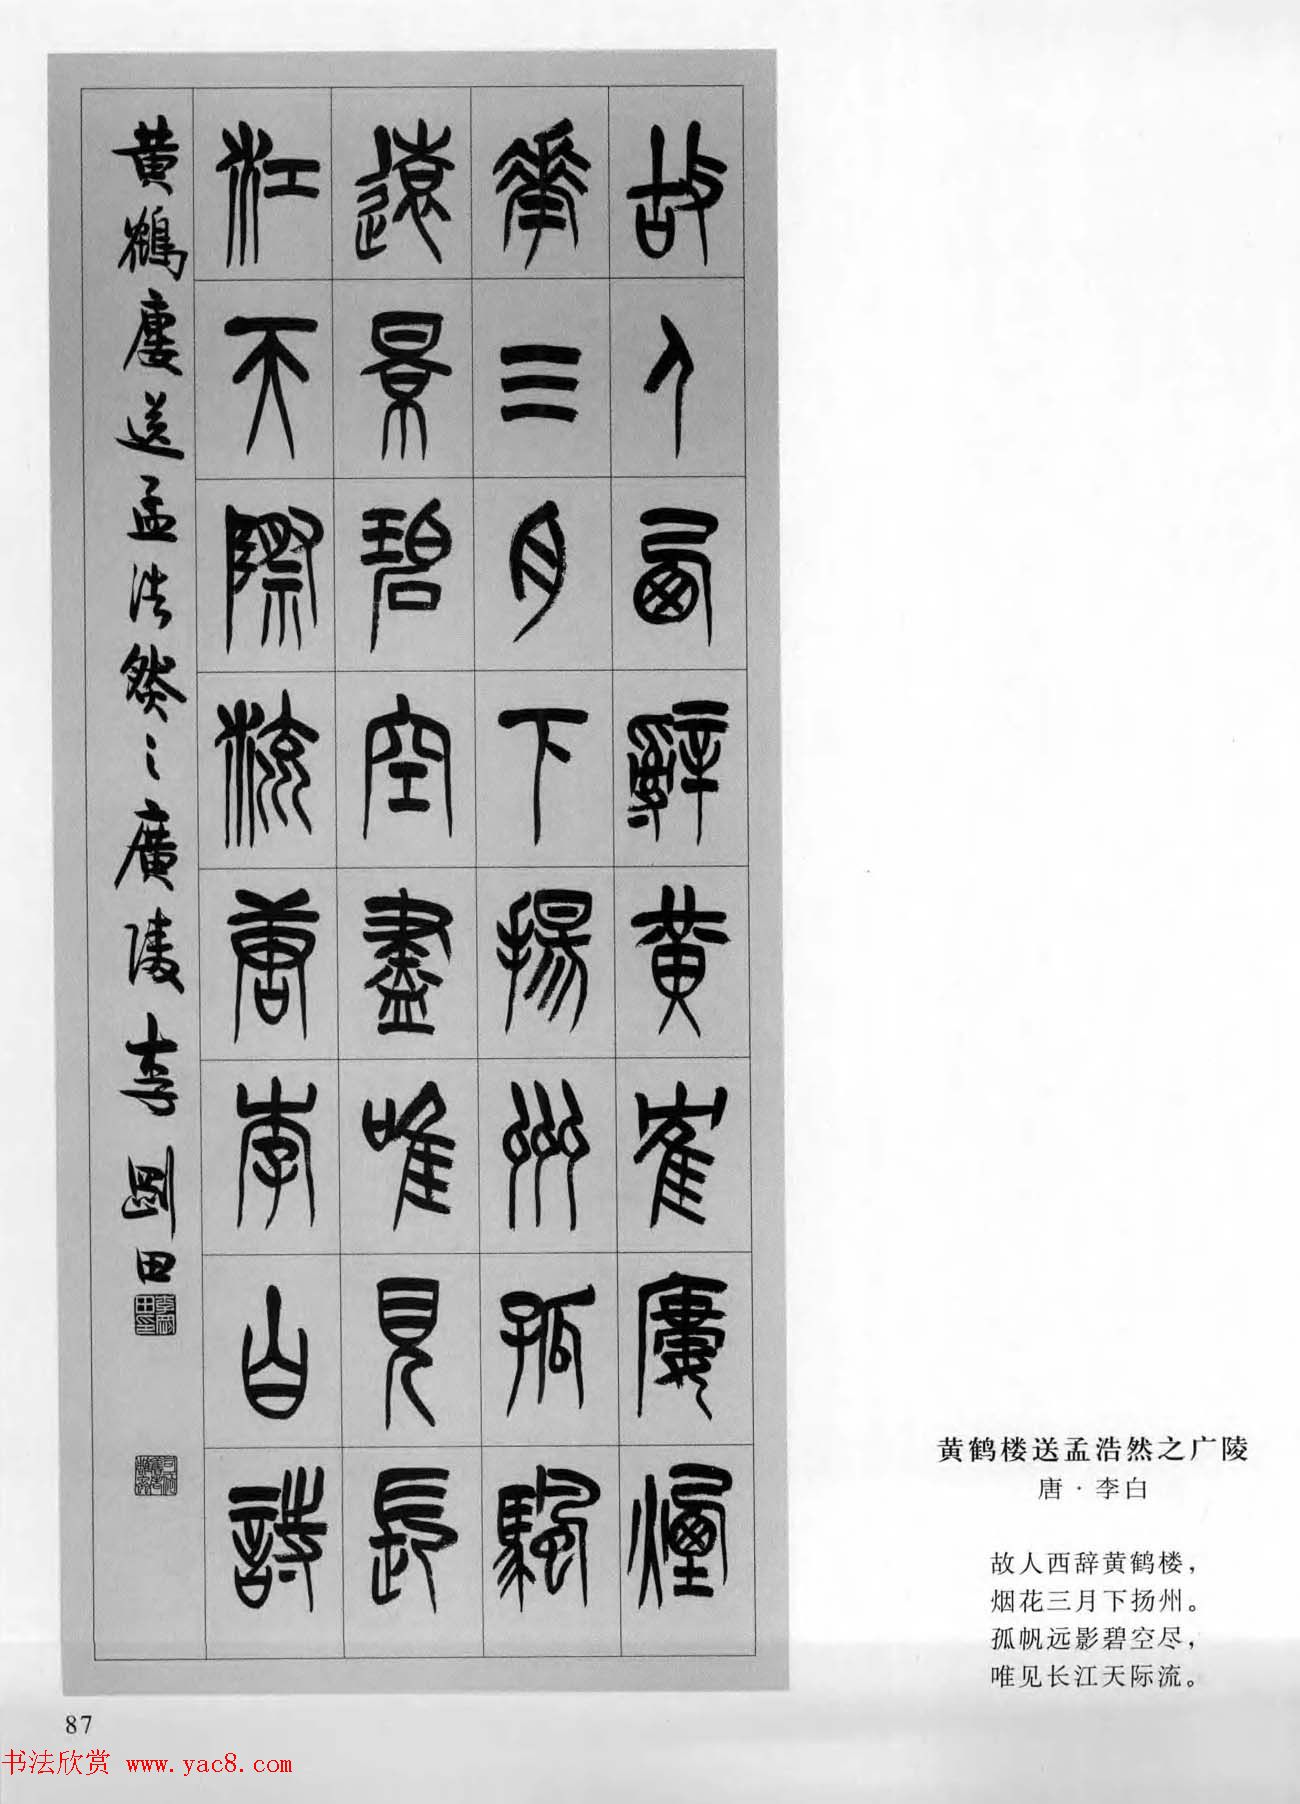 故人西辭黃隺廔煙
華三月下揚州孤颿
遠景碧空盡唯見長
江天際流唐李白詩
黃鶴廔送孟浩然之廣陵李剛田
李剛田印
黄鹤楼送孟浩然之广陵
唐·李白
故人西辞黄鹤楼，
烟花三月下扬州。
孤帆远影碧空尽，
唯见长江天际流。
87
书法欣赏 www.yac8.com